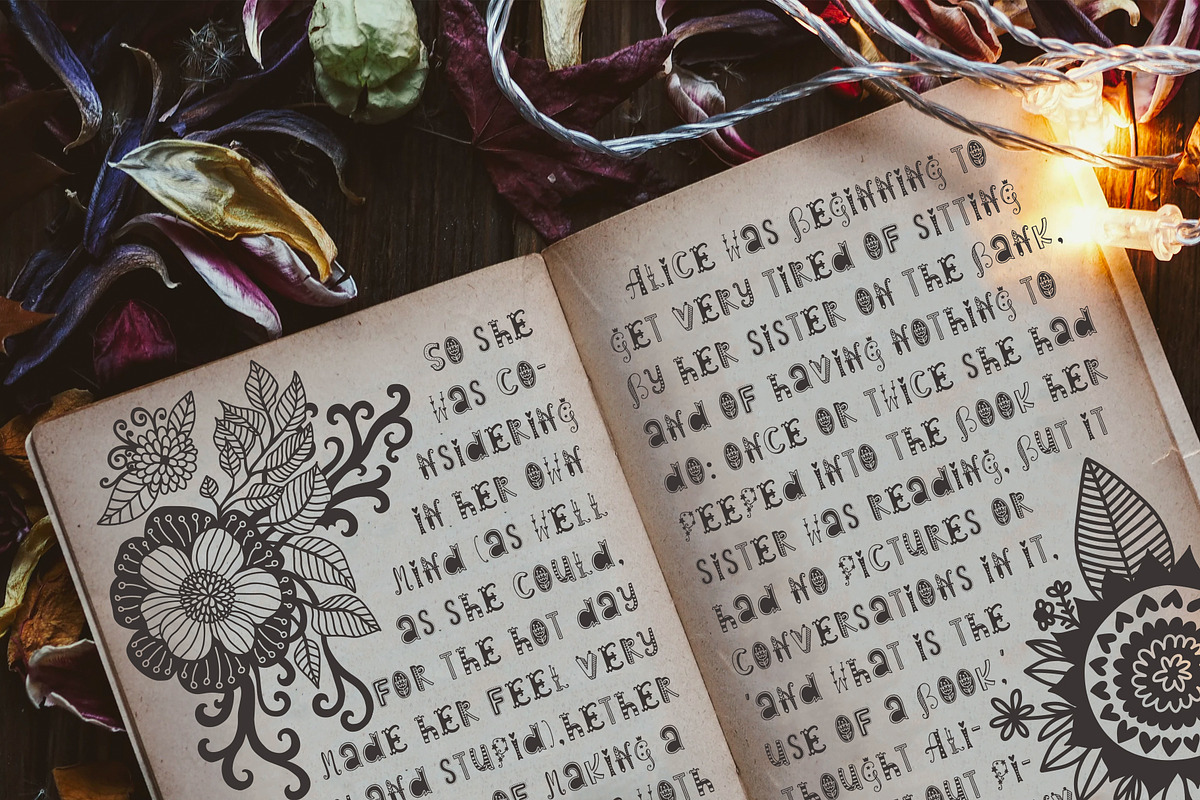 SO SHE
WAS CO-
NSIDERING
IN HER OWN
MIND (AS WELL
AS SHE COULD,
FOR THE HOT DAY
MADE HER FEEL VERY
AND STUPID),HETHER
OF MAKING A
ALICE WAS BEGINNING TO
GET VERY TIRED OF SITTING
BY HER SISTER ON THE BANK,
AND OF HAVING NOTHING TO
DO: ONCE OR TWICE SHE HAD
PEEPED INTO THE BOOK HER
SISTER WAS READING, BUT IT
HAD NO PICTURES OR
CONVERSATIONS IN IT,
'AND WHAT IS THE
USE OF A BOOK,'
THOUGHT ALI-
PI-